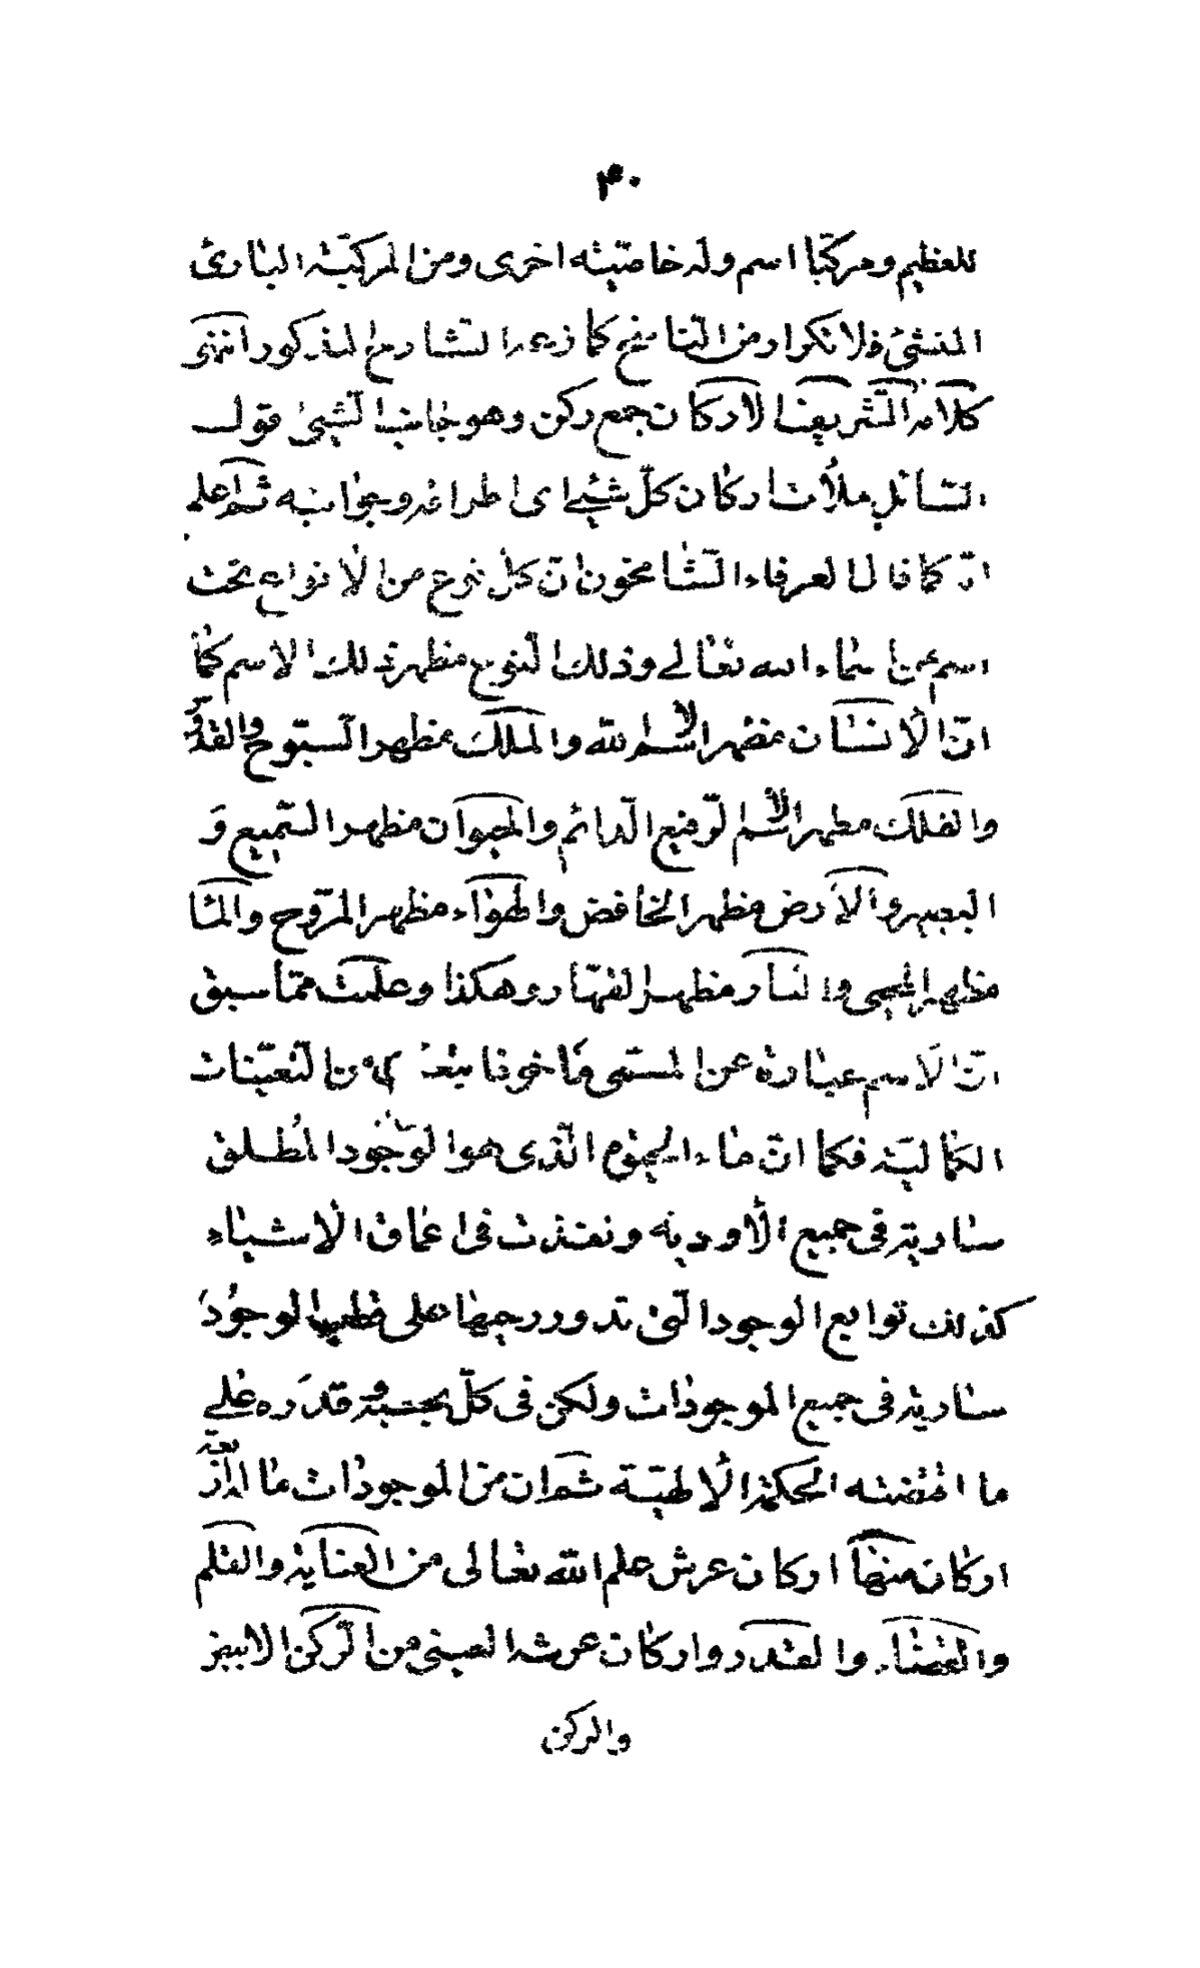 ۴۰
العظیم ومرکبا اسم وله خاصیته اخری ومن المرکبة الباری
المنشئ فلا تکرار من الناسخ کما زعم الشارح المذکور انتهی
کلامه الشریف الارکان جمع رکن وهو جانب الشیئ قول
السائل ملأت ارکان کل شیئ ای اطرافه وجوانبه ثم اعلم
انه کما قال العرفاء الشامخون ان کل نوع من الانواع تحت
اسم من اسماء الله تعالی وذلک النوع مظهر ذلک الاسم کما
ان الانسان مظهر الاسم الله والملک مظهر السبوح والقدو
والفلک مظهر الاسم الرفیع الدائم والحیوان مظهر السمیع و
البصیر والارض مظهر الخافض والهواء مظهر المروح والما
مظهر المحیی والنار مظهر القهار وهکذا وعلمت مما سبق
ان الاسم عبارة عن المسمی ماخوذا بتعین من التعینات
الکمالیة فکما ان ماء الحیوة الذی هوا لوجود المطلق
ساریة فی جمیع الاودیه ونفذت فی اعماق الاشیاء
کذلک توابع الوجود التی تدور رحیها علی قطب الوجود
ساریة فی جمیع الموجودات ولکن فی کل بحسبه وقدره علی
ما اقتضته الحکمة الالهیة ثم ان من الموجودات ما له اربعة
ارکان منها ارکان عرش علم الله تعالی من العنایة والقلم
والقضاء والقدر وارکان عرشه العینی من الرکن الابیض
والرکن